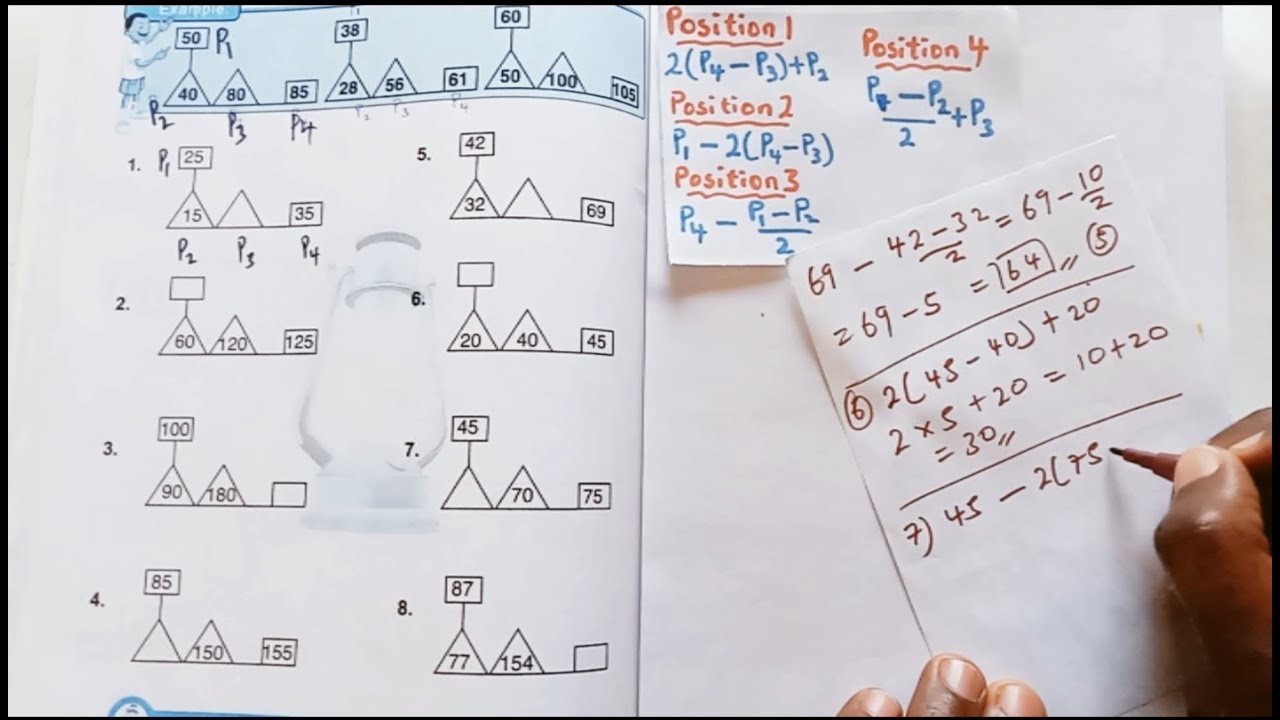 Example:
50 P₁
40 80 85
P₂ P₃ P4
38
28 56 61
P₂ P₃ P₄
60
50 100 105
1. P₁ 25
15 35
P₂ P₃ P₄
2.
60 120 125
3. 100
90 180
4. 85
150 155
5. 42
32 69
6.
20 40 45
7. 45
70 75
8. 87
77 154
Position 1
2(P₄ – P₃)+P₂
Position 2
P₁ – 2(P₄–P₃)
Position 3
P₄ – P₁–P₂
2
Position 4
P₁ – P₂ + P₃
2
69 – 42 – 32 = 69 – 10
2 2
= 69 – 5 = 64 // ⑤
⑥ 2(45 – 40) + 20
2 × 5 + 20 = 10 + 20
= 30 //
7) 45 – 2(75